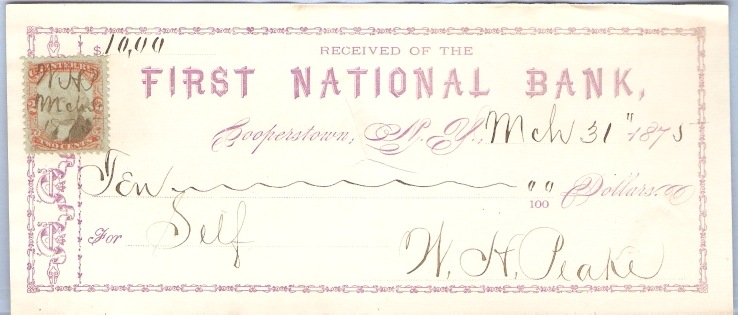 $ 10,00
RECEIVED OF THE
FIRST NATIONAL BANK,
Cooperstown, N. Y., Mch 31" 1875
Ten " " / 100 Dollars.
For Self
W. H. Peake
U.S. INTER. REV.
W. H.
Mch
TWO CENTS